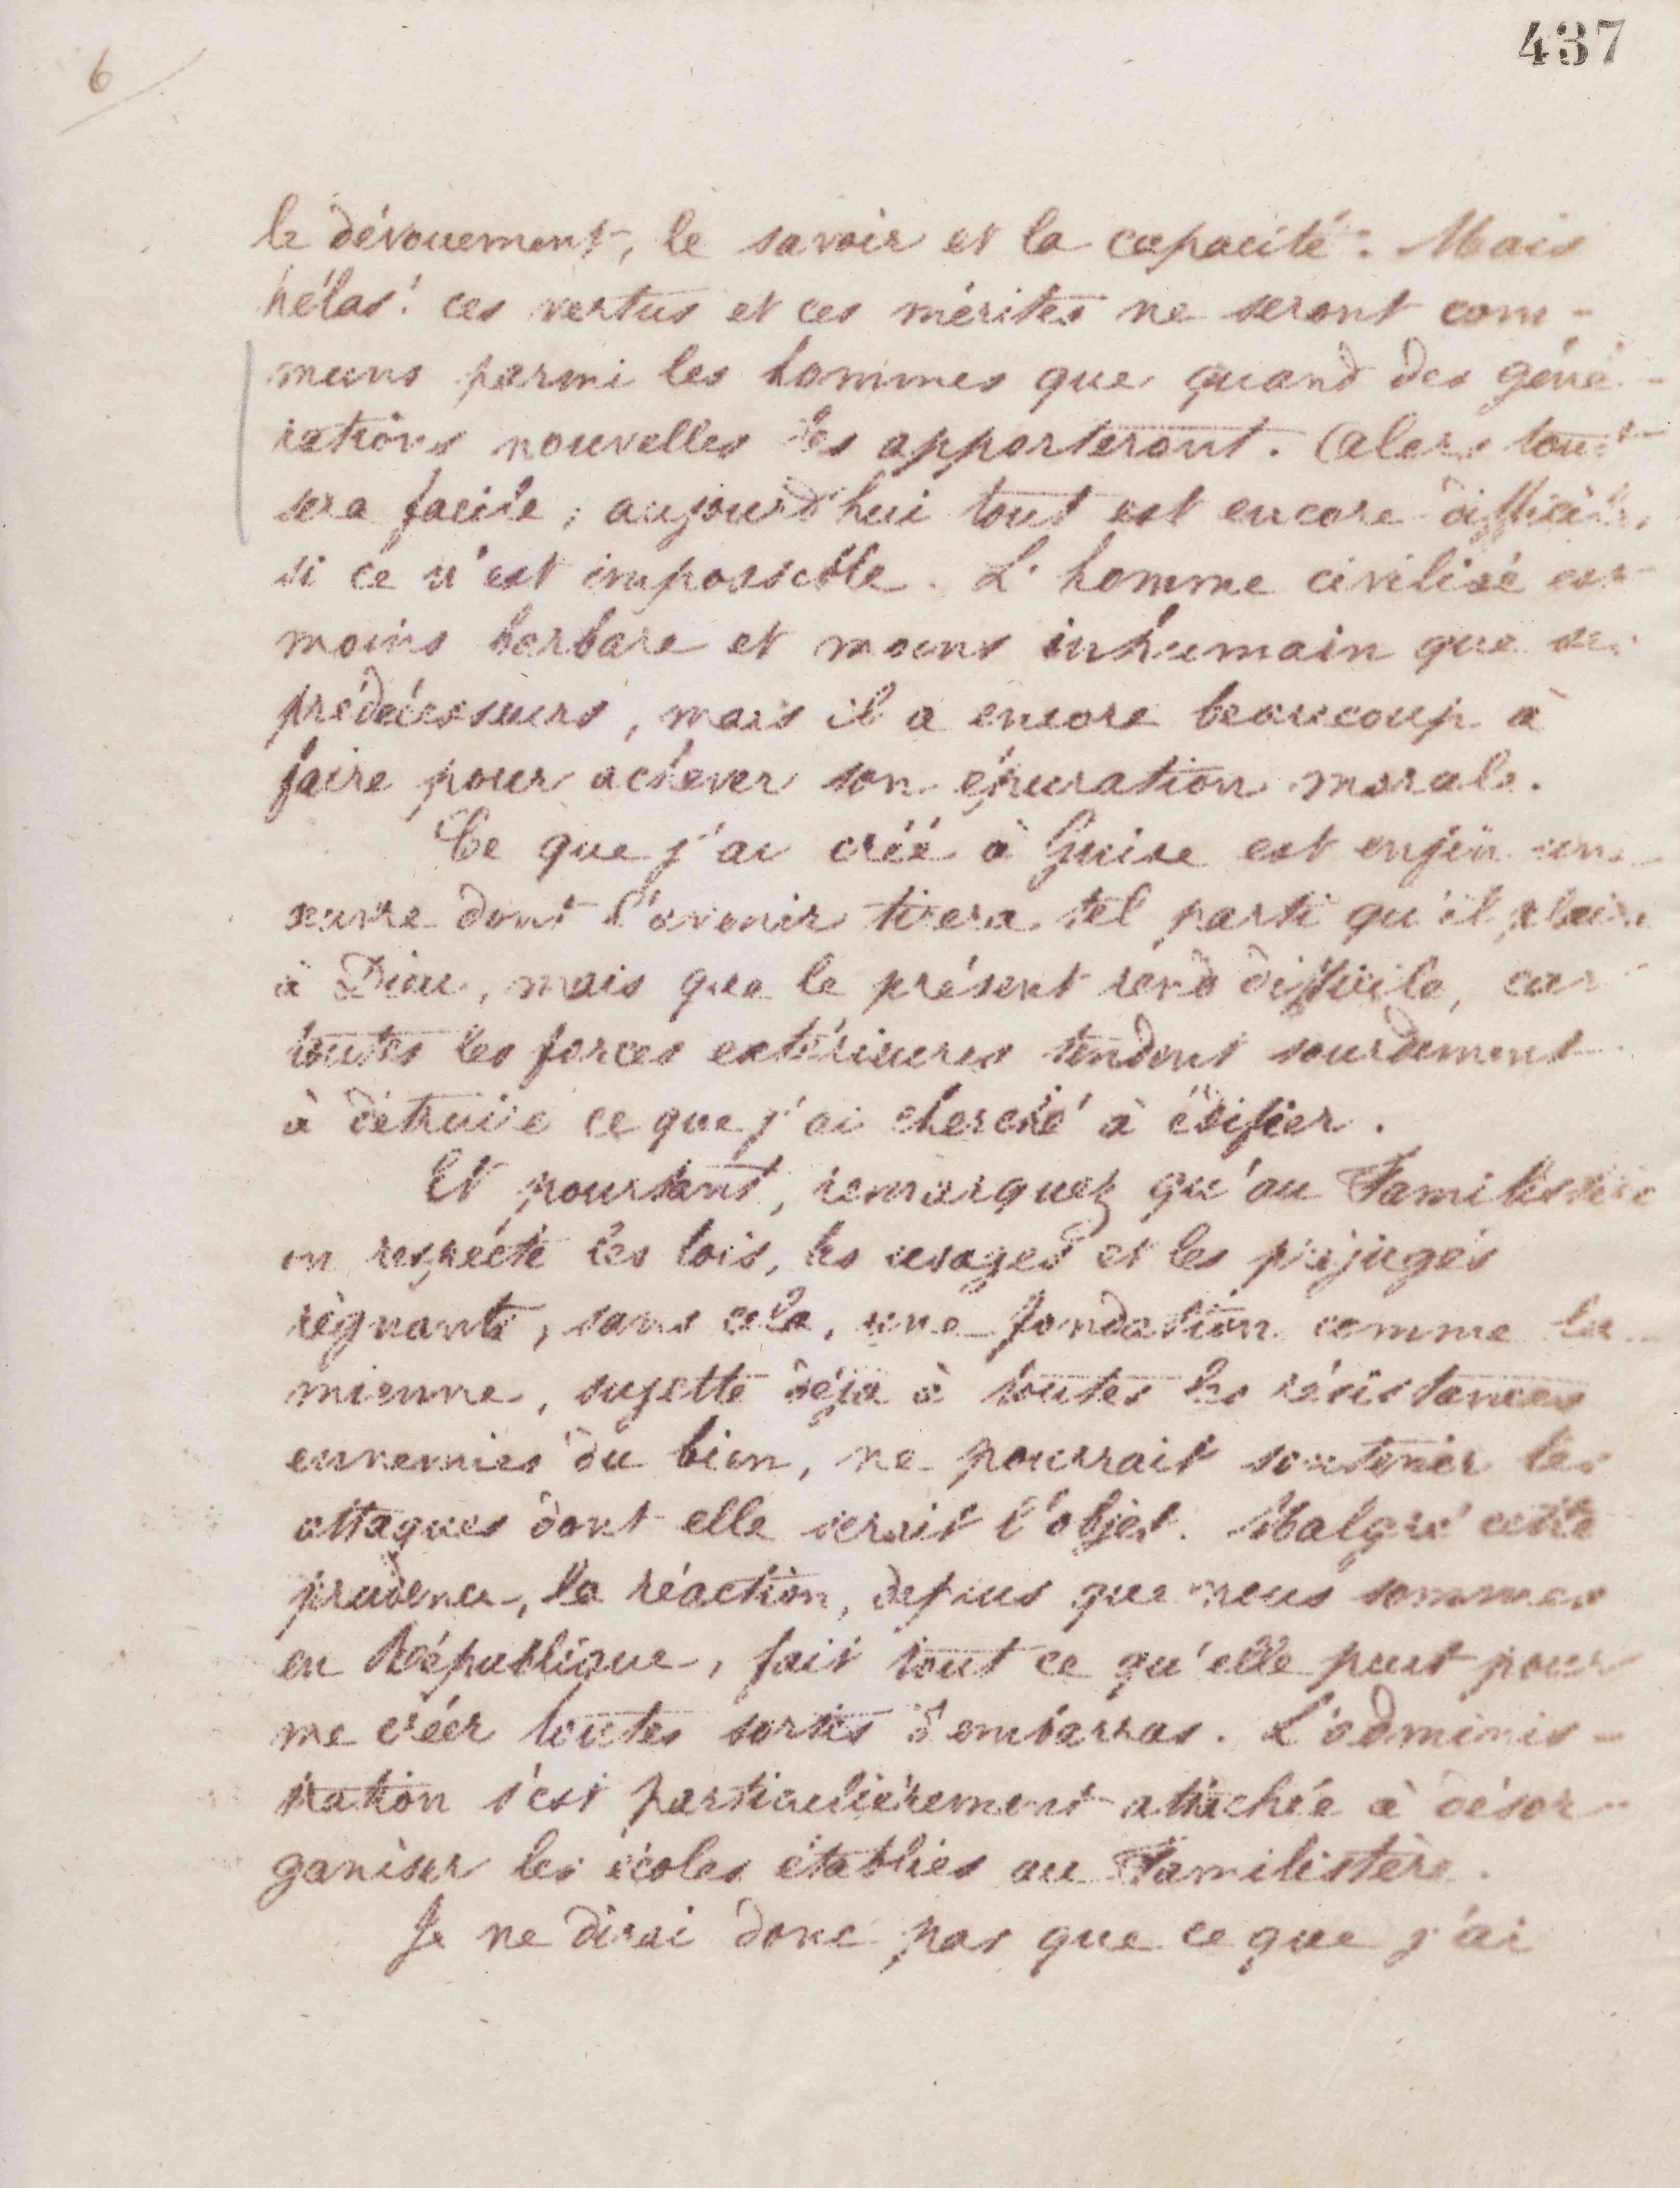 6
437
le dévouement, le savoir et la capacité. Mais
hélas! ces vertus et ces mérites ne seront com-
muns parmi les hommes que quand des géné-
rations nouvelles les apporteront. Alors tout
sera facile; aujourd'hui tout est encore difficile,
si ce n'est impossible. L'homme civilisé est
moins barbare et moins inhumain que ses
prédécesseurs, mais il a encore beaucoup à
faire pour achever son épuration morale.
Ce que j'ai créé à Guise est enfin une
œuvre dont l'avenir tirera tel parti qu'il plaira
à Dieu, mais que le présent rend difficile, car
toutes les forces extérieures tendent sourdement
à détruire ce que j'ai cherché à édifier.
Et pourtant, remarquez qu'au Familistère
on respecte les lois, les usages et les préjugés
règnants, sans cela, une fondation comme la
mienne, sujette déjà à toutes les résistances
ennemies du bien, ne pourrait soutenir les
attaques dont elle serait l'objet. Malgré cette
prudence, la réaction, depuis que nous sommes
en République, fait tout ce qu'elle peut pour
me créer toutes sortes d'embarras. L'adminis-
tration s'est particulièrement attachée à désor-
ganiser les écoles établies au Familistère.
Je ne dirai donc pas que ce que j'ai